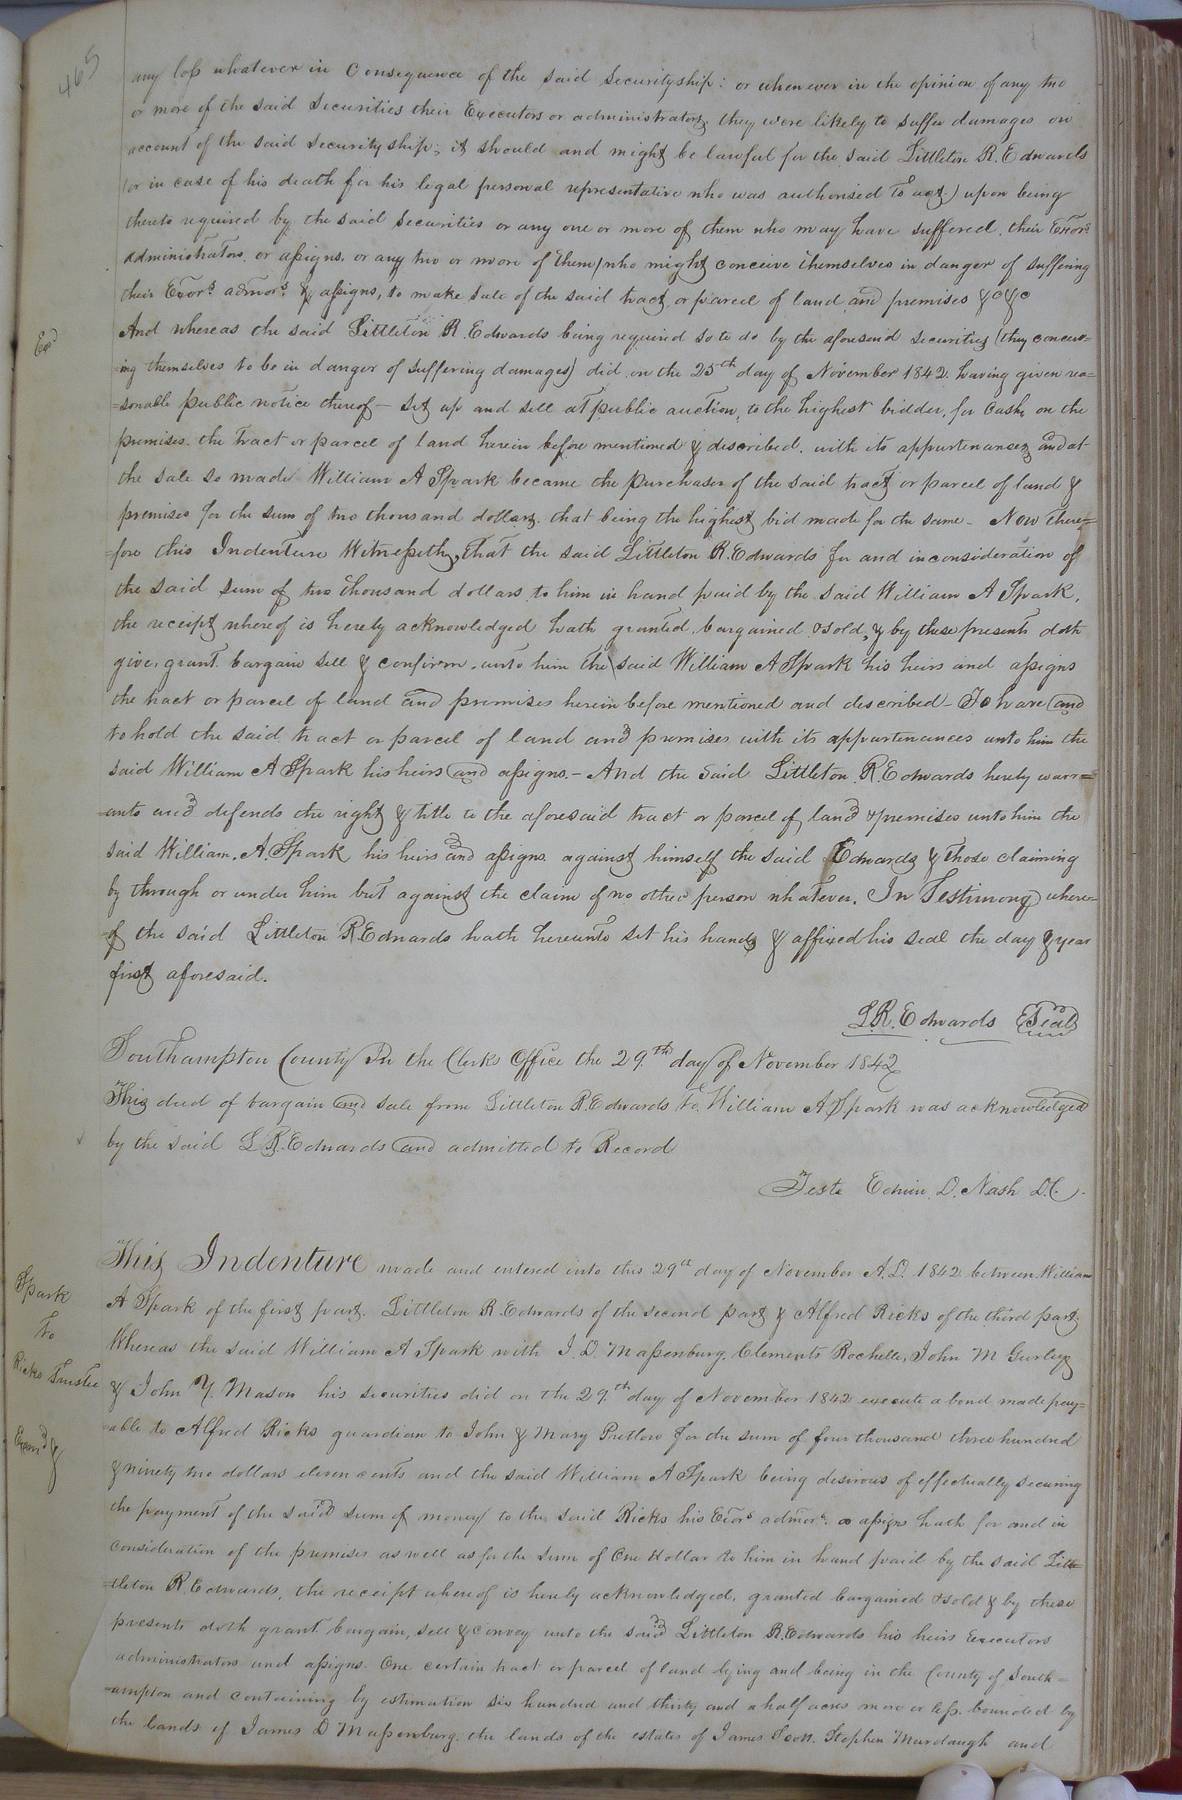 465
any loss whatever in Consequence of the said Securityship: or whenever in the opinion of any two
or more of the said Securities their Executors or administrators, they were likely to suffer damages on
account of the said Securityship; it should and might be lawful for the said Littleton R. Edwards
(or in case of his death for his legal personal representative who was authorised to act) upon being
thereto required by the said Securities or any one or more of them who may have suffered, their Exors
administrators, or assigns, or any two or more of them (who might conceive themselves in danger of suffering
their Exors. admors. & assigns, to make sale of the said tract or parcel of land and premises &c &c
And whereas the said Littleton R. Edwards being required so to do by the aforesaid Securities (they conceiv=
=ing themselves to be in danger of suffering damages) did on the 25th day of November 1842. having given rea=
=sonable public notice thereof – set up and sell at public auction, to the highest bidder, for Cash, on the
premises, the tract or parcel of land herein before mentioned & described, with its appurtenances and at
the sale so made William A Spark became the purchaser of the said tract or parcel of land &
premises for the sum of two thousand dollars, that being the highest bid made for the same – Now there=
=fore this Indenture Witnesseth, that the said Littleton R. Edwards for and in consideration of
the said sum of two thousand dollars to him in hand paid by the said William A Spark,
the receipt whereof is hereby acknowledged hath granted, bargained & sold, & by these presents doth
give, grant, bargain sell & confirm, unto him the said William A Spark his heirs and assigns
the tract or parcel of land and premises herein before mentioned and described – To have and
to hold the said tract or parcel of land and premises with its appurtenances unto him the
said William A Spark his heirs and assigns. – And the said Littleton R. Edwards hereby warr=
=ants and defends the right & title to the aforesaid tract or parcel of land & premises unto him the
said William. A. Spark his heirs and assigns against himself the said Edwards & those claiming
by through or under him but against the claim of no other person whatever. In Testimony where=
=of the said Littleton R Edwards hath hereunto set his hand & affixed his seal the day & year
first aforesaid.
L. R. Edwards Seal
Southampton County In the Clerks Office the 29th day of November 1842
This deed of bargain and sale from Littleton R. Edwards to William A Spark was acknowledged
by the said L. R. Edwards and admitted to Record
Teste Edwin. D. Nash D.C.
Spark
To
Ricks Trustee
Exam'd
This Indenture made and entered into this 29th day of November A.D. 1842 between William
A Spark of the first part. Littleton R. Edwards of the second part & Alfred Ricks of the third part.
Whereas the said William A Spark with J. D. Massenburg, Clements Rochelle, John M Gurley
& John Y. Mason his securities did on the 29th day of November 1842 execute a bond made pay=
=able to Alfred Ricks guardian to John & Mary Pretlow for the sum of four thousand three hundred
& ninety two dollars eleven cents and the said William A Spark being desirous of effectually securing
the payment of the said sum of money to the said Ricks his Exors admors. or assigns hath for and in
consideration of the premises as well as for the sum of One dollar to him in hand paid by the said Litt=
=tleton R. Edwards, the receipt whereof is hereby acknowledged, granted bargained & sold & by these
presents doth grant, bargain, sell & convey unto the said Littleton R. Edwards his heirs Executors
administrators and assigns. One certain tract or parcel of land lying and being in the County of South=
=ampton and containing by estimation six hundred and thirty and a half acres more or less. bounded by
the lands of James D Massenburg. the lands of the estates of James Scott. Stephen Murdaugh and